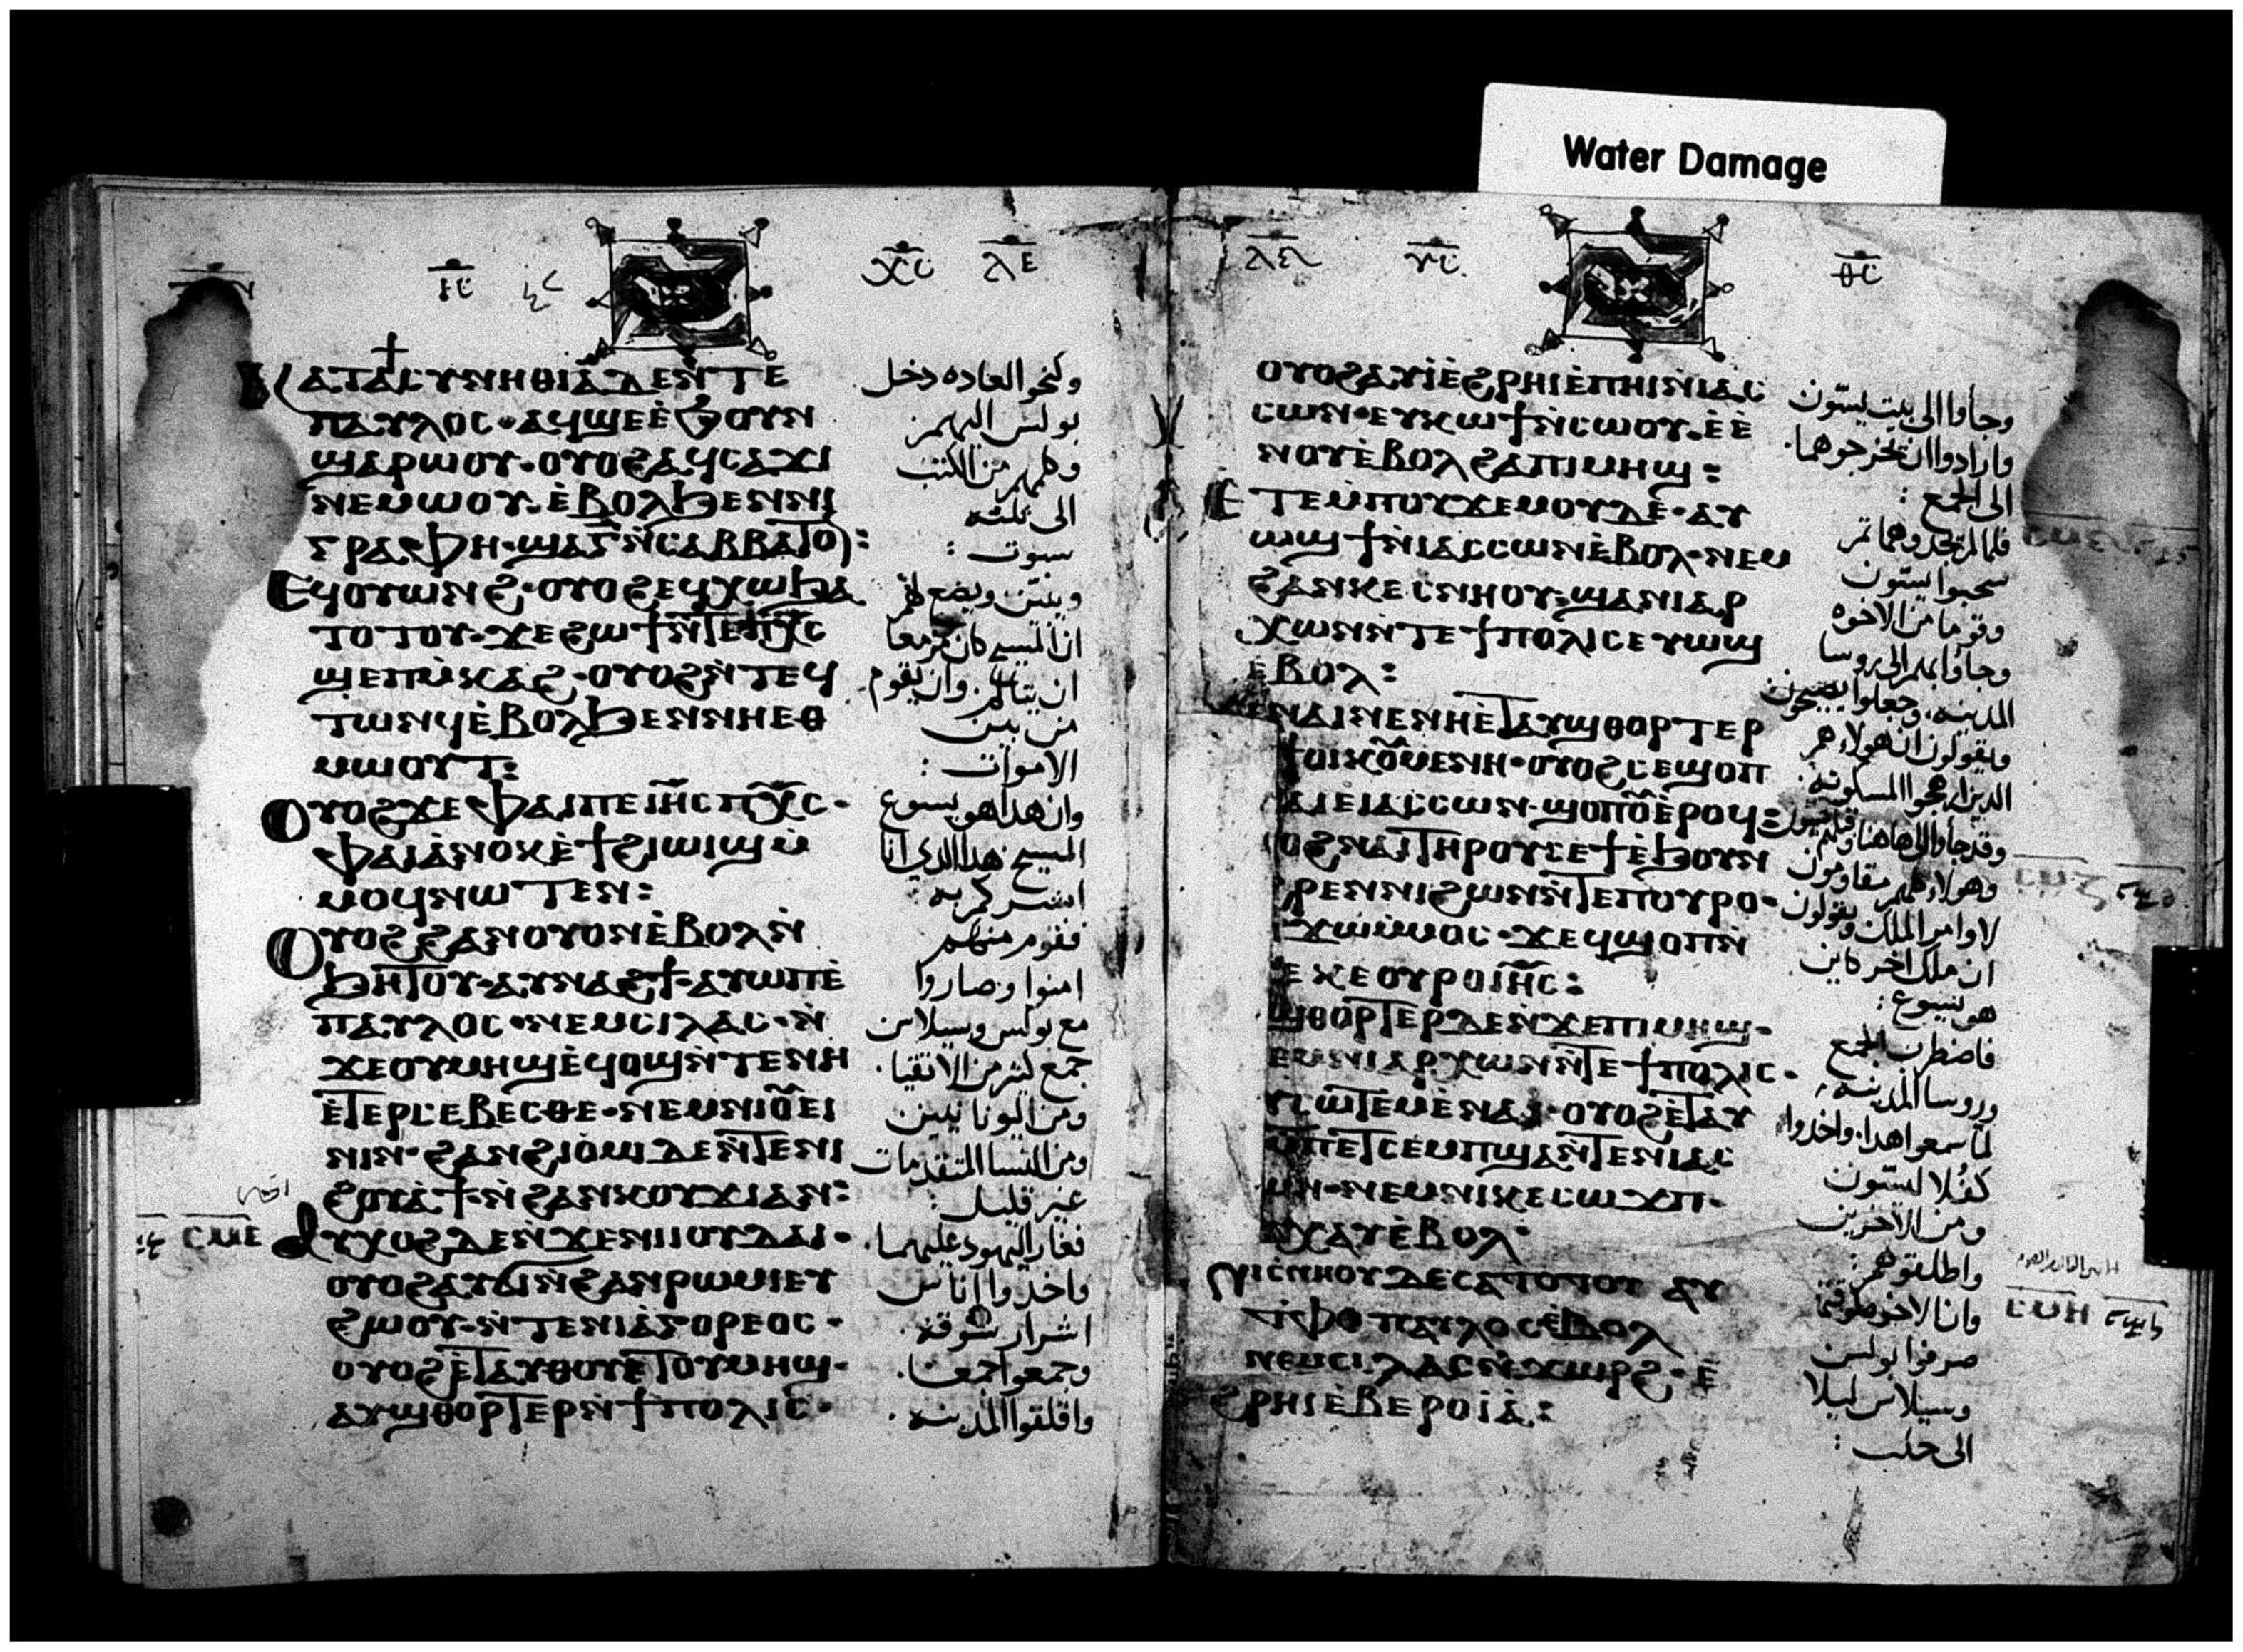 Water Damage
ⲕⲁⲧⲁⲥⲩⲛⲏⲑⲓⲁⲇⲉⲛ̀ⲧⲉ
ⲡⲁⲩⲗⲟⲥ·ⲁϥϣⲉⲉ̀ϧⲟⲩⲛ
ϣⲁⲣⲱⲟⲩ·ⲟⲩⲟϩⲁϥⲥⲁϫⲓ
ⲛⲉⲙⲱⲟⲩ·ⲉ̀ⲃⲟⲗϧⲉⲛⲛⲓ
ⲅⲣⲁⲫⲏ·ϣⲁⲅ̅ⲛ̀ⲥⲁⲃⲃⲁⲧⲟⲛ:
ⲉϥⲟⲩⲱⲛϩ·ⲟⲩⲟϩⲉϥⲭⲱϧⲁ
ⲧⲟⲧⲟⲩ·ϫⲉϩⲱϯⲛ̀ⲧⲉⲡⲭ̅ⲥ
ϣⲉⲡⲙ̀ⲕⲁϩ·ⲟⲩⲟϩⲛ̀ⲧⲉϥ
ⲧⲱⲛϥⲉ̀ⲃⲟⲗϧⲉⲛⲛⲏⲉⲑ
ⲙⲱⲟⲩⲧ:
ⲟⲩⲟϩϫⲉⲫⲁⲓⲡⲉⲓⲏ̅ⲥⲡⲭ̅ⲥ·
ⲫⲁⲓⲁ̀ⲛⲟⲕⲉ̀ϯϩⲓⲱⲓϣⲙ̀
ⲙⲟϥⲛⲱⲧⲉⲛ:
ⲟⲩⲟϩϩⲁⲛⲟⲩⲟⲛⲉ̀ⲃⲟⲗⲛ̀
ϧⲏⲧⲟⲩ·ⲁⲩⲛⲁϩϯ·ⲁⲩⲱⲡⲉ̀
ⲡⲁⲩⲗⲟⲥ·ⲛⲉⲙⲥⲓⲗⲁⲥ·ⲛ̀
ϫⲉⲟⲩⲙⲏϣⲉ̀ϥⲟϣⲛ̀ⲧⲉⲛⲏ
ⲉ̀ⲧⲉⲣⲥⲉⲃⲉⲥⲑⲉ·ⲛⲉⲙⲛⲓⲟ̅ⲉⲓ
ⲛⲓⲛ·ϩⲁⲛϩⲓⲟ̀ⲙⲓⲇⲉⲛ̀ⲧⲉⲛⲓ
ϩⲟⲩⲁ̀ϯ·ⲛ̀ϩⲁⲛⲕⲟⲩϫⲓⲁⲛ:
ⲥⲙⲉ
ⲁⲩⲭⲟϩⲇⲉⲛ̀ϫⲉⲛⲓⲓⲟⲩⲇⲁⲓ·
ⲟⲩⲟϩⲁⲩϭⲓⲛ̀ϩⲁⲛⲣⲱⲙⲓⲉⲩ
ϩⲱⲟⲩ·ⲛ̀ⲧⲉⲛⲓⲁ̀ⲅⲟⲣⲉⲟⲥ·
ⲟⲩⲟϩⲉ̀ⲧⲁⲩⲑⲟⲩⲉ̀ⲧⲟⲩⲙⲏϣ·
ⲁⲩϣⲑⲟⲣⲧⲉⲣⲛ̀ϯⲡⲟⲗⲓⲥ·
وكنحو العاده دخل
بولس اليهم
وكلمهم من الكتب
الى ثلثه
سبوت :
ويبين ويضع لهم
ان المسيح كان مزمعا
ان يتالم. وان يقوم
من بين
الاموات :
وان هدا هو يسوع
المسيح هدا الدي انا
ابشركم به :
فقوم منهم
امنوا وصاروا
مع بولس وسيلاس
جمع كثير من الاتقيا.
ومن اليونانيين
ومن النسا المتقدمات
غير قليل :
فغار اليهود عليهما.
واخدوا اناس
اشرار سوقه.
وجمعوا جمعا.
واقلقوا المدينه.
ⲟⲩⲟϩⲁⲩⲓ̀ⲉ̀ϩⲣⲏⲓⲉ̀ⲡⲏⲓⲛ̀ⲓⲁⲥ
ⲥⲱⲛ·ⲉⲩⲕⲱϯⲛ̀ⲥⲱⲟⲩ·ⲉ̀ⲉ̀
ⲛⲟⲩⲉ̀ⲃⲟⲗϩⲁⲡⲓⲙⲏϣ:
ⲉⲧⲉⲙ̀ⲡⲟⲩϫⲉⲙⲟⲩⲇⲉ·ⲁⲩ
ⲱϣϯⲛ̀ⲓⲁⲥⲥⲱⲛⲉ̀ⲃⲟⲗ·ⲛⲉⲙ
ϩⲁⲛⲕⲉⲥⲛⲏⲟⲩ·ϣⲁⲛⲓⲁⲣ
ⲭⲱⲛⲛ̀ⲧⲉϯⲡⲟⲗⲓⲥⲉⲩⲱϣ
ⲉⲃⲟⲗ:
ⲛⲁⲓⲛⲉⲛⲏⲉ̀ⲧⲁⲩϣⲑⲟⲣⲧⲉⲣ
ϯⲟⲓⲕⲟⲩⲙⲉⲛⲏ·ⲟⲩⲟϩⲥⲉϣⲟⲡ
ⲁⲓⲉⲓⲁⲥⲥⲱⲛ·ϣⲟⲡⲟⲩⲉ̀ⲣⲟϥ:
ⲟϩⲛⲁⲓⲧⲏⲣⲟⲩⲥⲉϯⲉ̀ϧⲟⲩⲛ
ϩⲣⲉⲛⲛⲓϩⲱⲛⲛ̀ⲧⲉⲡⲟⲩⲣⲟ·
ϫⲱⲙ̀ⲙⲟⲥ·ϫⲉϥϣⲟⲡⲛ̀
ⲉⲕⲉⲟⲩⲣⲟⲓⲏ̅ⲥ:
ϣⲑⲟⲣⲧⲉⲣⲇⲉⲛ̀ϫⲉⲡⲓⲙⲏϣ·
ⲉⲙⲛⲓⲁⲣⲭⲱⲛⲛ̀ⲧⲉϯⲡⲟⲗⲓⲥ·
ⲥⲱⲧⲉⲙⲉ̀ⲛⲁⲓ·ⲟⲩⲟϩⲉ̀ⲧⲁⲩ
ⲙⲡⲉⲧⲥⲉⲙⲡϣⲁⲛ̀ⲧⲉⲛⲓⲁⲥ
ⲱⲛ·ⲛⲉⲙⲛⲓⲕⲉⲥⲱϫⲡ·
ⲭⲁⲩⲉ̀ⲃⲟⲗ:
ⲛⲓⲥⲛⲏⲟⲩⲇⲉⲥⲁⲧⲟⲧⲟⲩ ⲁⲩ
ⲧⲫⲟⲡⲁⲩⲗⲟⲥⲉ̀ⲃⲟⲗ
ⲛⲉⲙⲥⲓⲗⲁⲥⲛ̀ϫⲱⲣϩ·ⲉ̀
ϩⲣⲏⲓⲉ̀ⲃⲉⲣⲟⲓⲁ̀:
وجاوا الى بيت يسّون
وارادوا ان يخرجوهما.
الى الجمع :
فلما لم يجدوهما ثم
سحبوا يسّون
وقوما من الاخوه
وجاوا بهم الى روسا
المدينه. وجعلوا يصيحون
ويقولون ان هولاء هم
الدين ارهجوا المسكونه.
وقد جاوا الى هاهنا
وهولاء كلهم مقاومون
لاوامر الملك ويقولون
ان ملك اخر كاين
هو يسوع :
فاضطرب الجمع
وروسا المدينه
لما سمعوا هدا. واخدوا
كفلا ليسّون
ومن الاخرين
واطلقوهم :
وان الاخوه
صرفوا بولس
وسيلاس ليلا
الى حلب :
ⲥⲙⲏ